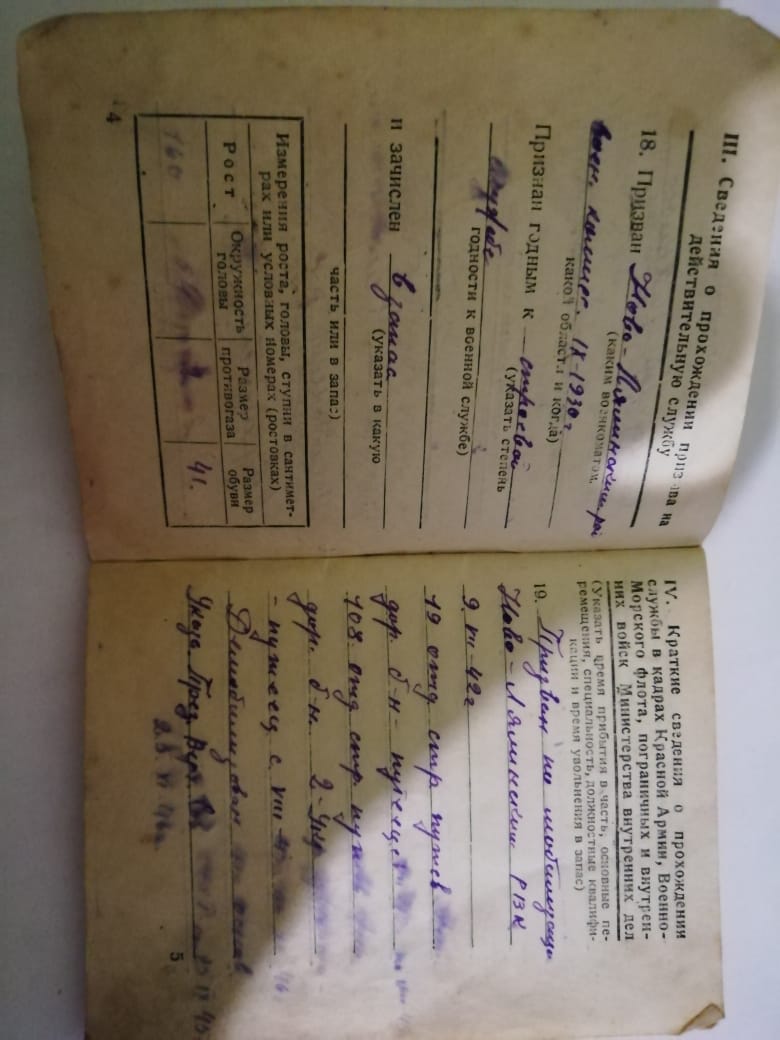 III. Сведения о прохождении призыва на
действительную службу
18. Призван Ново-Лялинским рай
(каким военкоматом,
воен. комисс. IX-1930 г
какой области и когда)
Признан годным к строевой
(указать степень
службе
годности к военной службе)
и зачислен в запас
(указать в какую
часть или в запас)
Измерения роста, головы, ступни в сантимет-
рах или условных номерах (ростовках)
Рост Окружность головы Размер противогаза Размер обуви
160 41.
4
IV. Краткие сведения о прохождении
службы в кадрах Красной Армии, Военно-
Морского флота, пограничных и внутрен-
них войск Министерства внутренних дел
(Указать время прибытия в часть, основные пе-
ремещения, специальность, должностные квалифи-
кации и время увольнения в запас)
19. Призван по мобилизации
Ново-Лялинским РВК
9. VII-42 г
19 отд стр путев
дор. б-н - путеец
108 отд стр путев
дор. б-н. 2-Укр
- путеец с VIII
Демобилизован
Указа През. Верх.
5